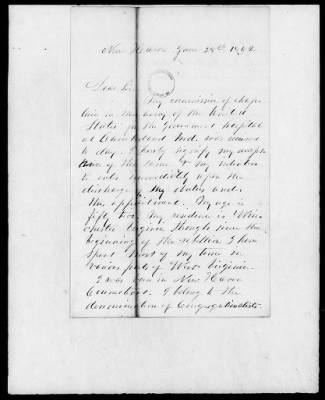 New Haven June 28th 1862
Dear Sir
My commission of chap-
lain in the army of the United
States for the Government hospital
at Cumberland Md. was received
to day. I hereby signify my accept-
ance of the same & my intention
to enter immediately upon the
discharge of my duties under
this appointment. My age is
fifty two. My residence is Win-
chester Virginia though since the
beginning of the rebellion I have
spent most of my time in
various parts of West Virginia.
I was born in New Haven
Connecticut. I belong to the
denomination of Congregationalists.